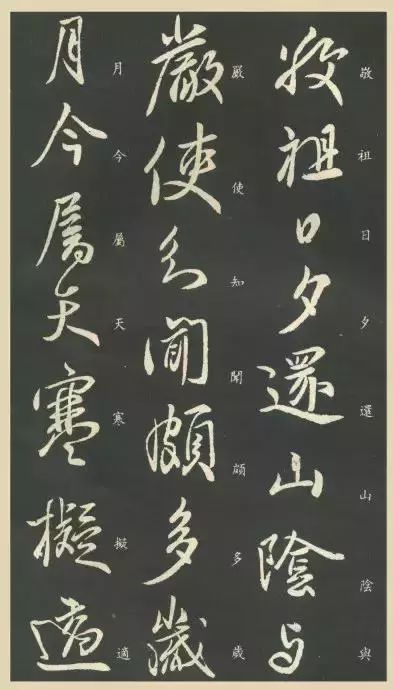 敬祖日夕還山陰與
敬祖日夕還山陰與
嚴使知聞頗多歲
嚴使知聞頗多歲
月今屬天寒擬適
月今屬天寒擬適